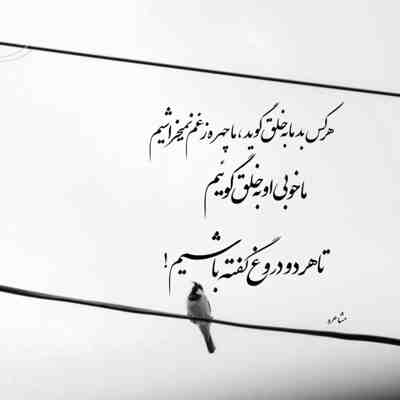 هرکس بد ما به خلق گوید ، ما چهره ز غم نمیخراشیم
ما خوبی او به خلق گوئیم
تا هر دو دروغ گفته باشیم !
مشاعره